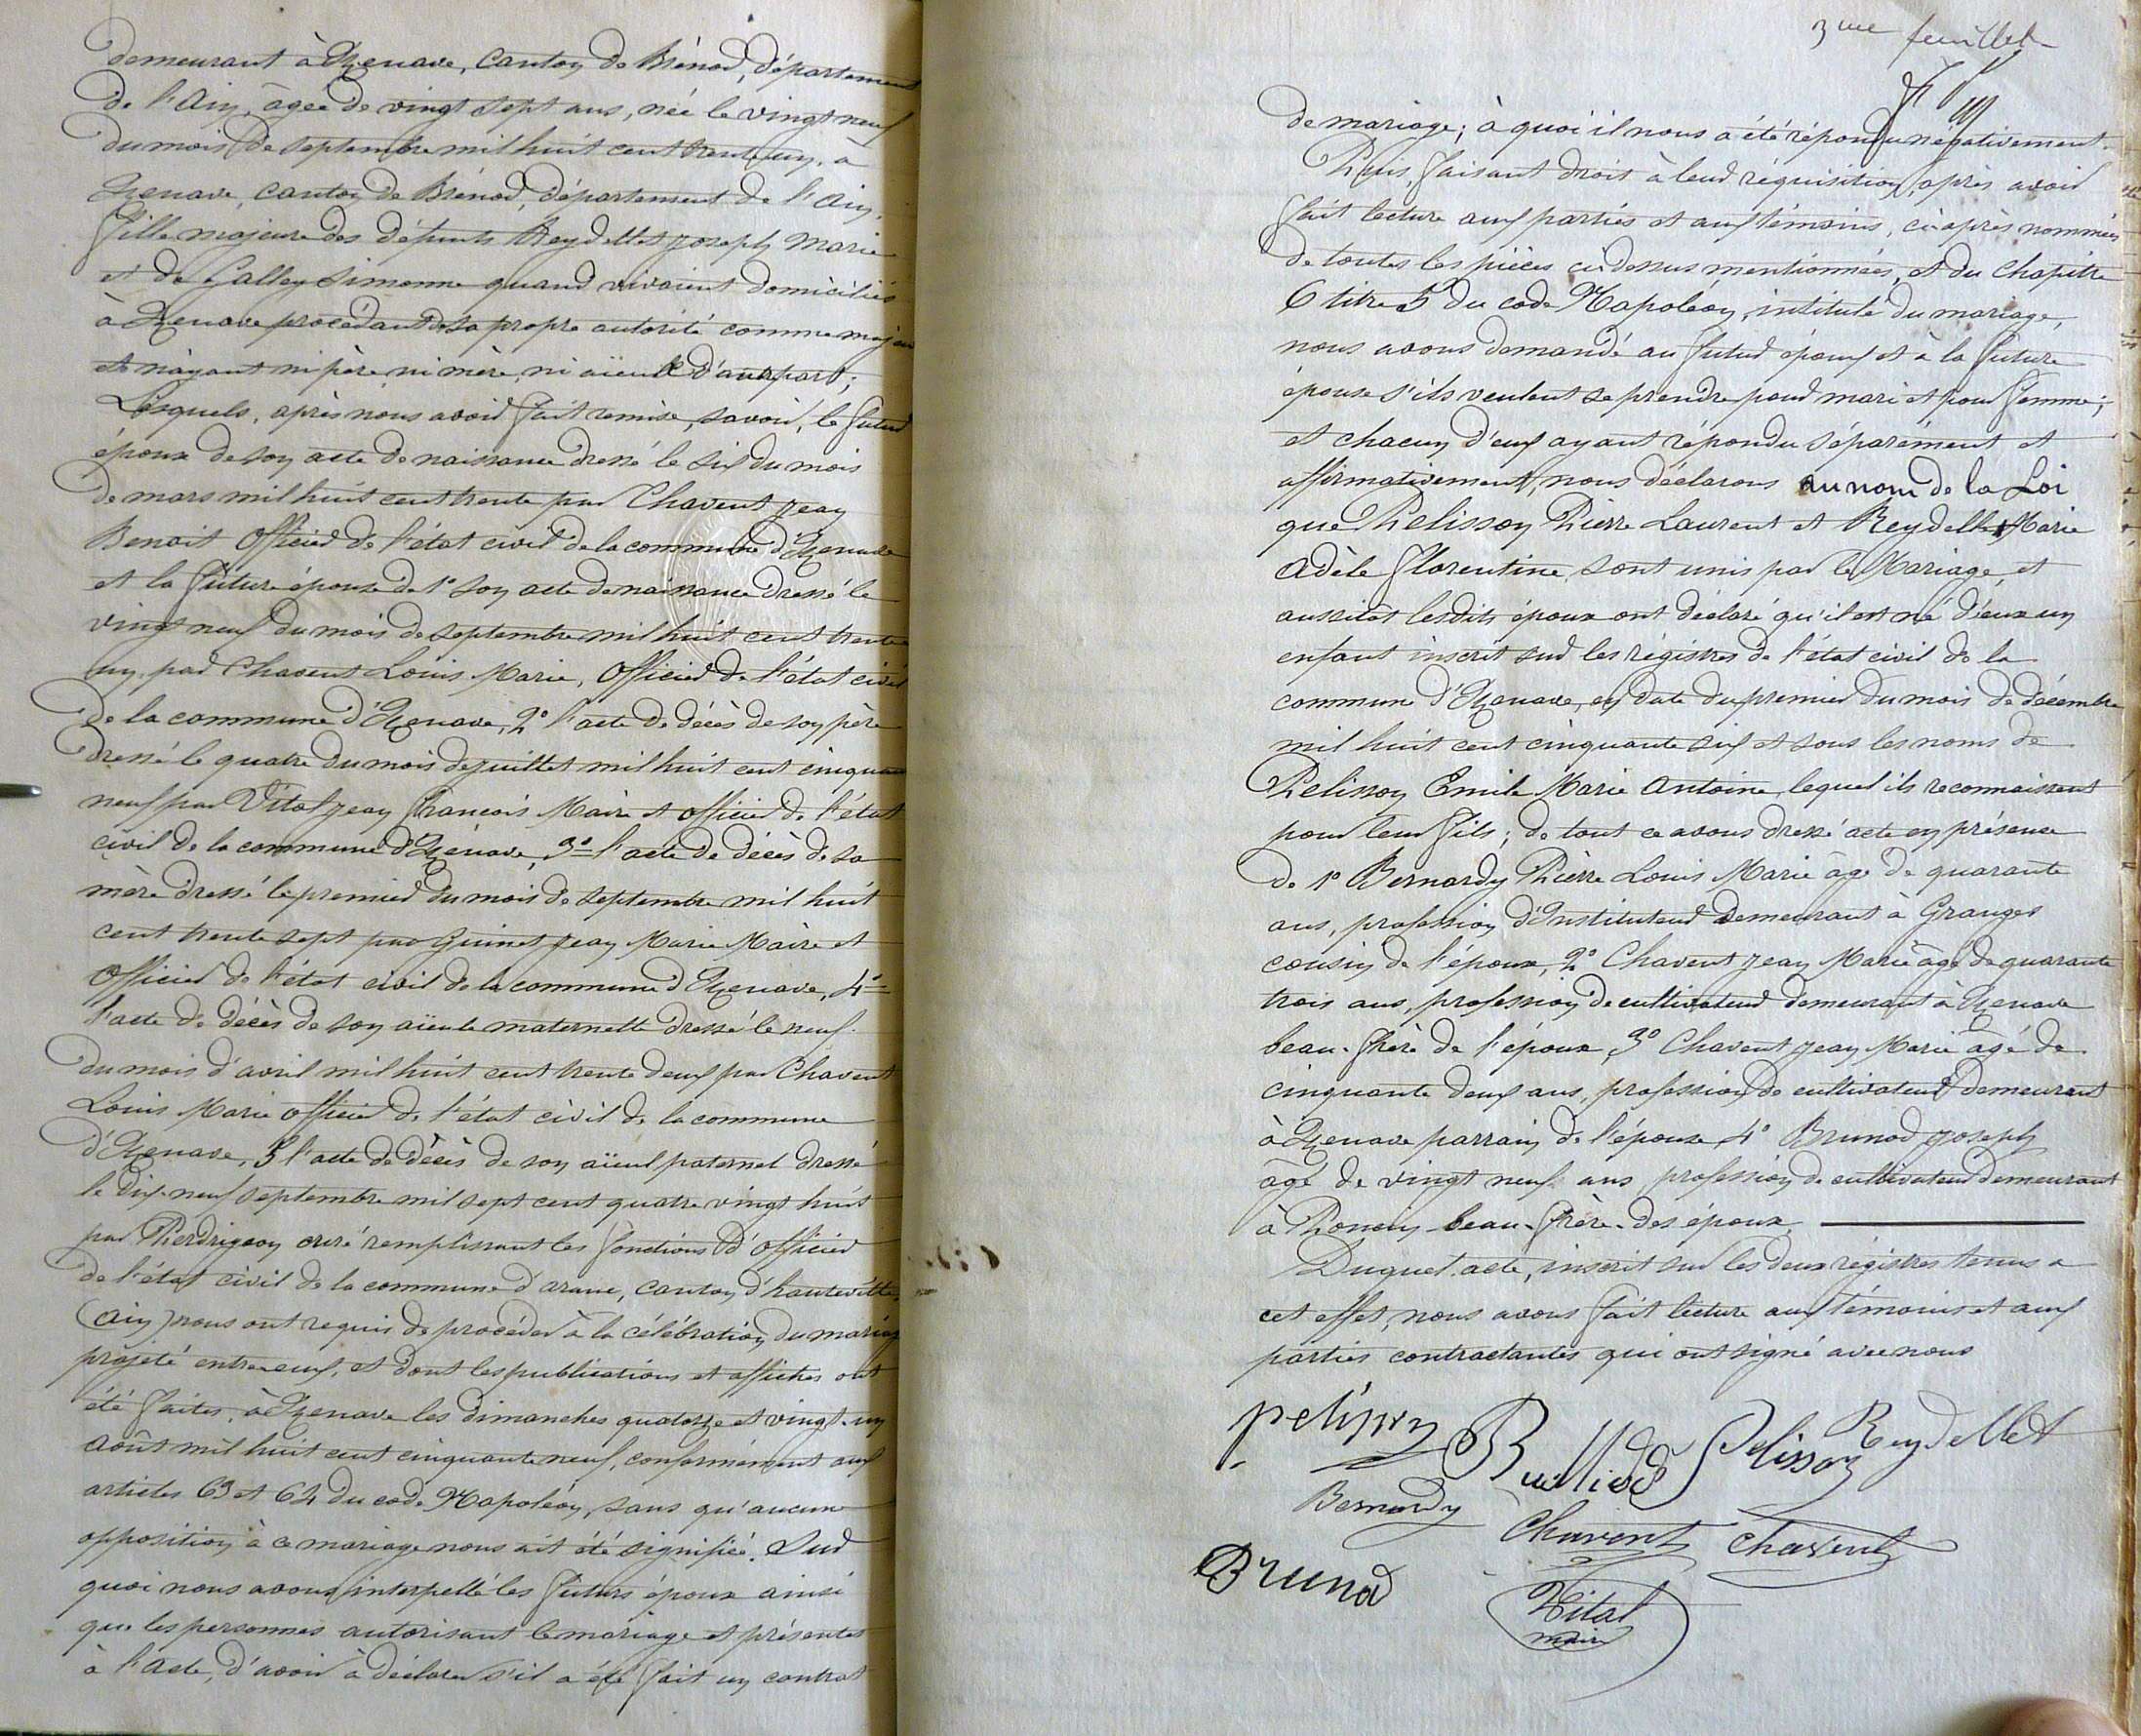 demeurant à Izenave, canton de Brénod, département
de l'Ain, âgée de vingt sept ans, née le vingt neuf
du mois de septembre mil huit cent trente un, à
Izenave, canton de Brénod, département de l'Ain,
fille majeure des défunts Reydellet Joseph Marie
et de Galley Simonne quand vivaient domiciliés
à Izenave procédant de sa propre autorité comme majeure
et n'ayant ni père, ni mère, ni aïeul d'autre part;
Lesquels, après nous avoir fait remise, savoir, le futur
époux de son acte de naissance dressé le six du mois
de mars mil huit cent trente par Chavent Jean
Benoit officier de l'état civil de la commune d'Izenave
et la future épouse de 1º son acte de naissance dressé le
vingt neuf du mois de septembre mil huit cent trente
un, par Chavent Louis Marie, officier de l'état civil
de la commune d'Izenave, 2º l'acte de décès de son père
dressé le quatre du mois de juillet mil huit cent cinquante
neuf par Vital Jean François Maire et officier de l'état
civil de la commune d'Izenave, 3º l'acte de décès de sa
mère dressé le premier du mois de septembre mil huit
cent trente sept par Guinet Jean Marie Maire et
officier de l'état civil de la commune d'Izenave, 4º
l'acte de décès de son aïeule maternelle dressé le neuf
du mois d'avril mil huit cent trente deux par Chavent
Louis Marie officier de l'état civil de la commune
d'Izenave, 5 l'acte de décès de son aïeul paternel dressé
le dix-neuf septembre mil sept cent quatre vingt huit
par Perdrigeon curé remplissant les fonctions d'officier
de l'état civil de la commune d'arane, canton d'hauteville,
(Ain) nous ont requis de procéder à la célébration du mariage
projeté entre eux, et dont les publications et affiches ont
été faites, à Izenave les dimanches quatorze et vingt-un
août mil huit cent cinquante neuf, conformément aux
articles 63 et 64 du code Napoléon, sans qu'aucune
opposition à ce mariage nous ait été signifiée. Sur
quoi nous avons interpellé les futurs époux ainsi
que les personnes autorisant le mariage et présentes
à l'acte, d'avoir à déclarer s'il a été fait un contrat
3me feuillet
de mariage; à quoi il nous a été répondu négativement.
Puis, faisant droit à leur réquisition, après avoir
fait lecture aux parties et aux témoins, ci-après nommés
de toutes les pièces ci-dessus mentionnées, et du chapitre
6 titre 5 du code Napoléon, intitulé du mariage,
nous avons demandé au futur époux et à la future
épouse s'ils veulent se prendre pour mari et pour femme;
et chacun d'eux ayant répondu séparément et
affirmativement, nous déclarons au nom de la Loi
que Pelisson Pierre Laurent et Reydellet Marie
Adèle Florentine, sont unis par le Mariage, et
aussitôt lesdits époux ont déclaré qu'il est né d'eux un
enfant inscrit sur les régistres de l'état civil de la
commune d'Izenave, en date du premier du mois de décembre
mil huit cent cinquante six et sous les noms de
Pelisson Emile Marie Antoine, lequel ils reconnaissent
pour leur fils; de tout ce avons dressé acte en présence
de 1º Bernardy Pierre Louis Marie âgé de quarante
ans, profession d'Instituteur demeurant à Granges
cousin de l'époux, 2º Chavent Jean Marie âgé de quarante
trois ans, profession de cultivateur demeurant à Izenave
beau-frère de l'époux, 3º Chavent Jean Marie âgé de
cinquante deux ans, profession de cultivateur demeurant
à Izenave parrain de l'épouse 4º Brunod Joseph
âgé de vingt neuf ans profession de cultivateur demeurant
à Poncin beau-frère des époux
Duquel acte, inscrit sur les deux régistres tenus a
cet effet, nous avons fait lecture aux témoins et aux
parties contractantes qui ont signé avec nous
pelisson Reydellet
Pelisson
Bernardy Chavent Chavent
Brunod Vital
maire